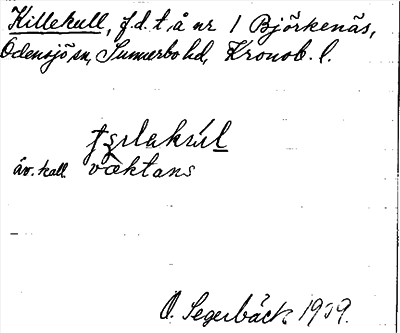 Killekull, f.d. t. å nr 1 Björkenäs,
Odensjö sn, Sunnerbo hd, Kronob. l.
av. kall. væktans
O. Segerbäck 1909.